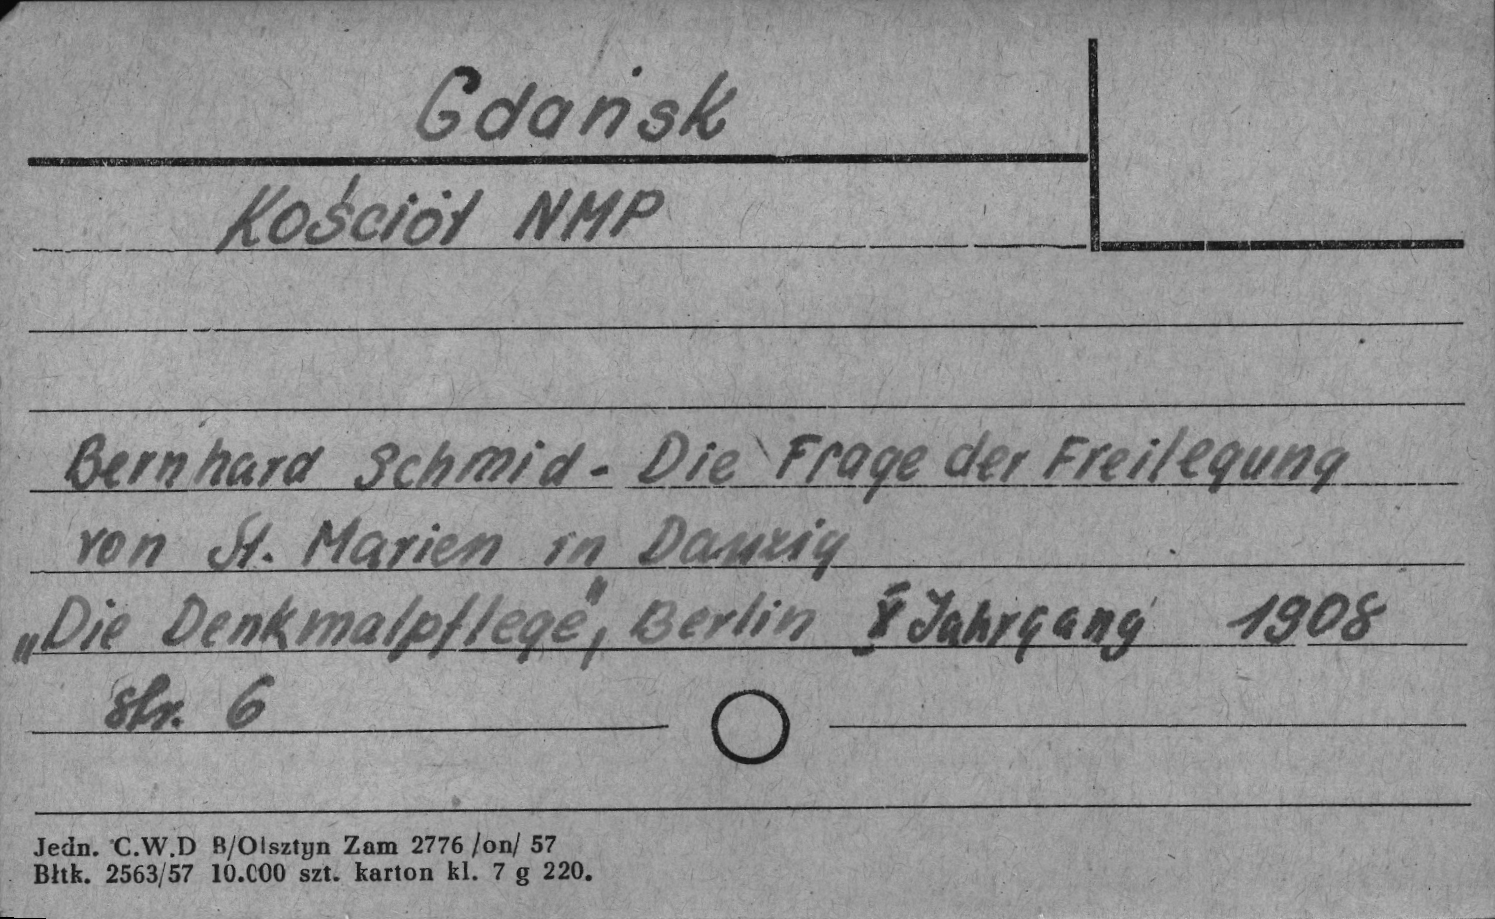 Gdańsk
Kościół NMP
Bernhard Schmid - Die Frage der Freilegung
von St. Marien in Danzig
„Die Denkmalpflege", Berlin X Jahrgang 1908
str. 6
Jedn. C.W.D B/Olsztyn Zam 2776 /on/ 57
Błtk. 2563/57 10.000 szt. karton kl. 7 g 220.